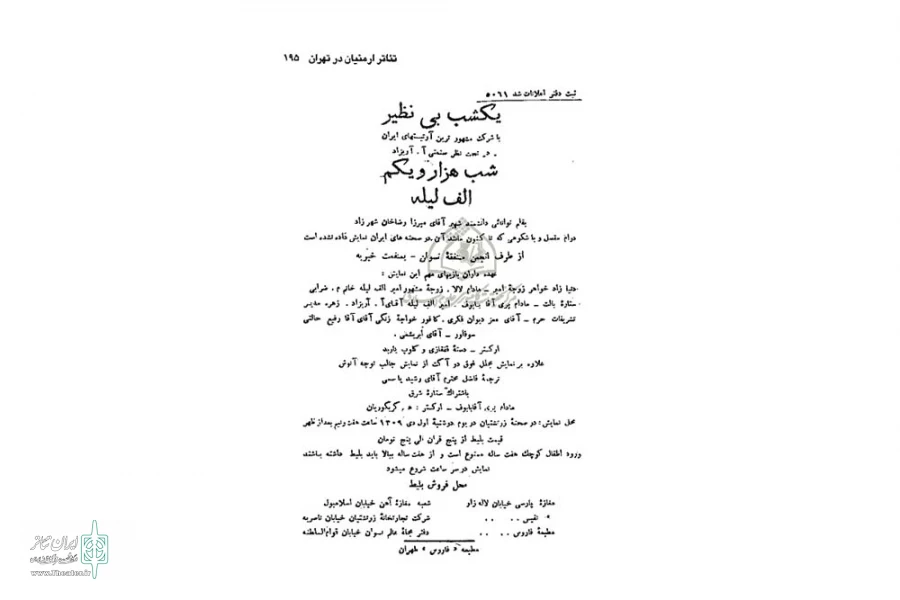 تئاتر ارمنیان در تهران ۱۹۵
ثبت دفتر اعلانات شد ۵۰۶۱
یکشب بی نظیر
با شرکت مشهور ترین آرتیستهای ایران
در تحت نظر صنعتی آ . آریزاد
شب هزار و یکم
الف لیله
بقلم توانائی دانشمند شهیر آقای میرزا رضاخان شهرزاد
درام مفصل و با شکوهی که تا کنون مانند آن در صحنه های ایران نمایش داده نشده است
از طرف انجمن نسوان - بمنفعت خیریه
عهده داران بازیهای مهم این نمایش :
دنیا زاد خواهر زوجهٔ امیر - مادام لالا . زوجهٔ مشهور امیر الف لیله خانم م . شرابی
ستارهٔ بالت - مادام پری آقا بابوف . امیر الف لیله آقای آ . آریزاد . زهره مدیر
تشریفات حرم - آقای معز دیوان فکری . کافور خواجهٔ زنگی آقای آقا رفیع حالتی
سوفلور - آقای ابریشمی .
ارکستر - دستهٔ قفقازی و کلوپ
علاوه بر نمایش مجلل فوق دو آکت از نمایش جالب توجه آنوش
ترجمهٔ فاضل محترم آقای رشید یاسمی
باشتراک ستارهٔ شرق
مادام پری آقابابوف - ارکستر : گریگوریان
محل نمایش : در صحنهٔ زرتشتیان در یوم دوشنبهٔ اول دی ۱۳۰۹ ساعت هفت و نیم بعد از ظهر
قیمت بلیط از پنج قران الی پنج تومان
ورود اطفال کوچک هفت ساله ممنوع است و از هفت ساله ببالا باید بلیط داشته باشند
نمایش در سر ساعت شروع میشود
محل فروش بلیط
مغازهٔ پارسی خیابان لاله زار شعبه مغازهٔ آهن خیابان اسلامبول
" نفیس .. .. شرکت تجارتخانهٔ زرتشتیان خیابان ناصریه
مطبعهٔ فاروس .. .. دفتر مجلهٔ عالم نسوان خیابان قوام‌السلطنه
مطبعه « فاروس » طهران
ایران تئاتر
www.Theater.ir